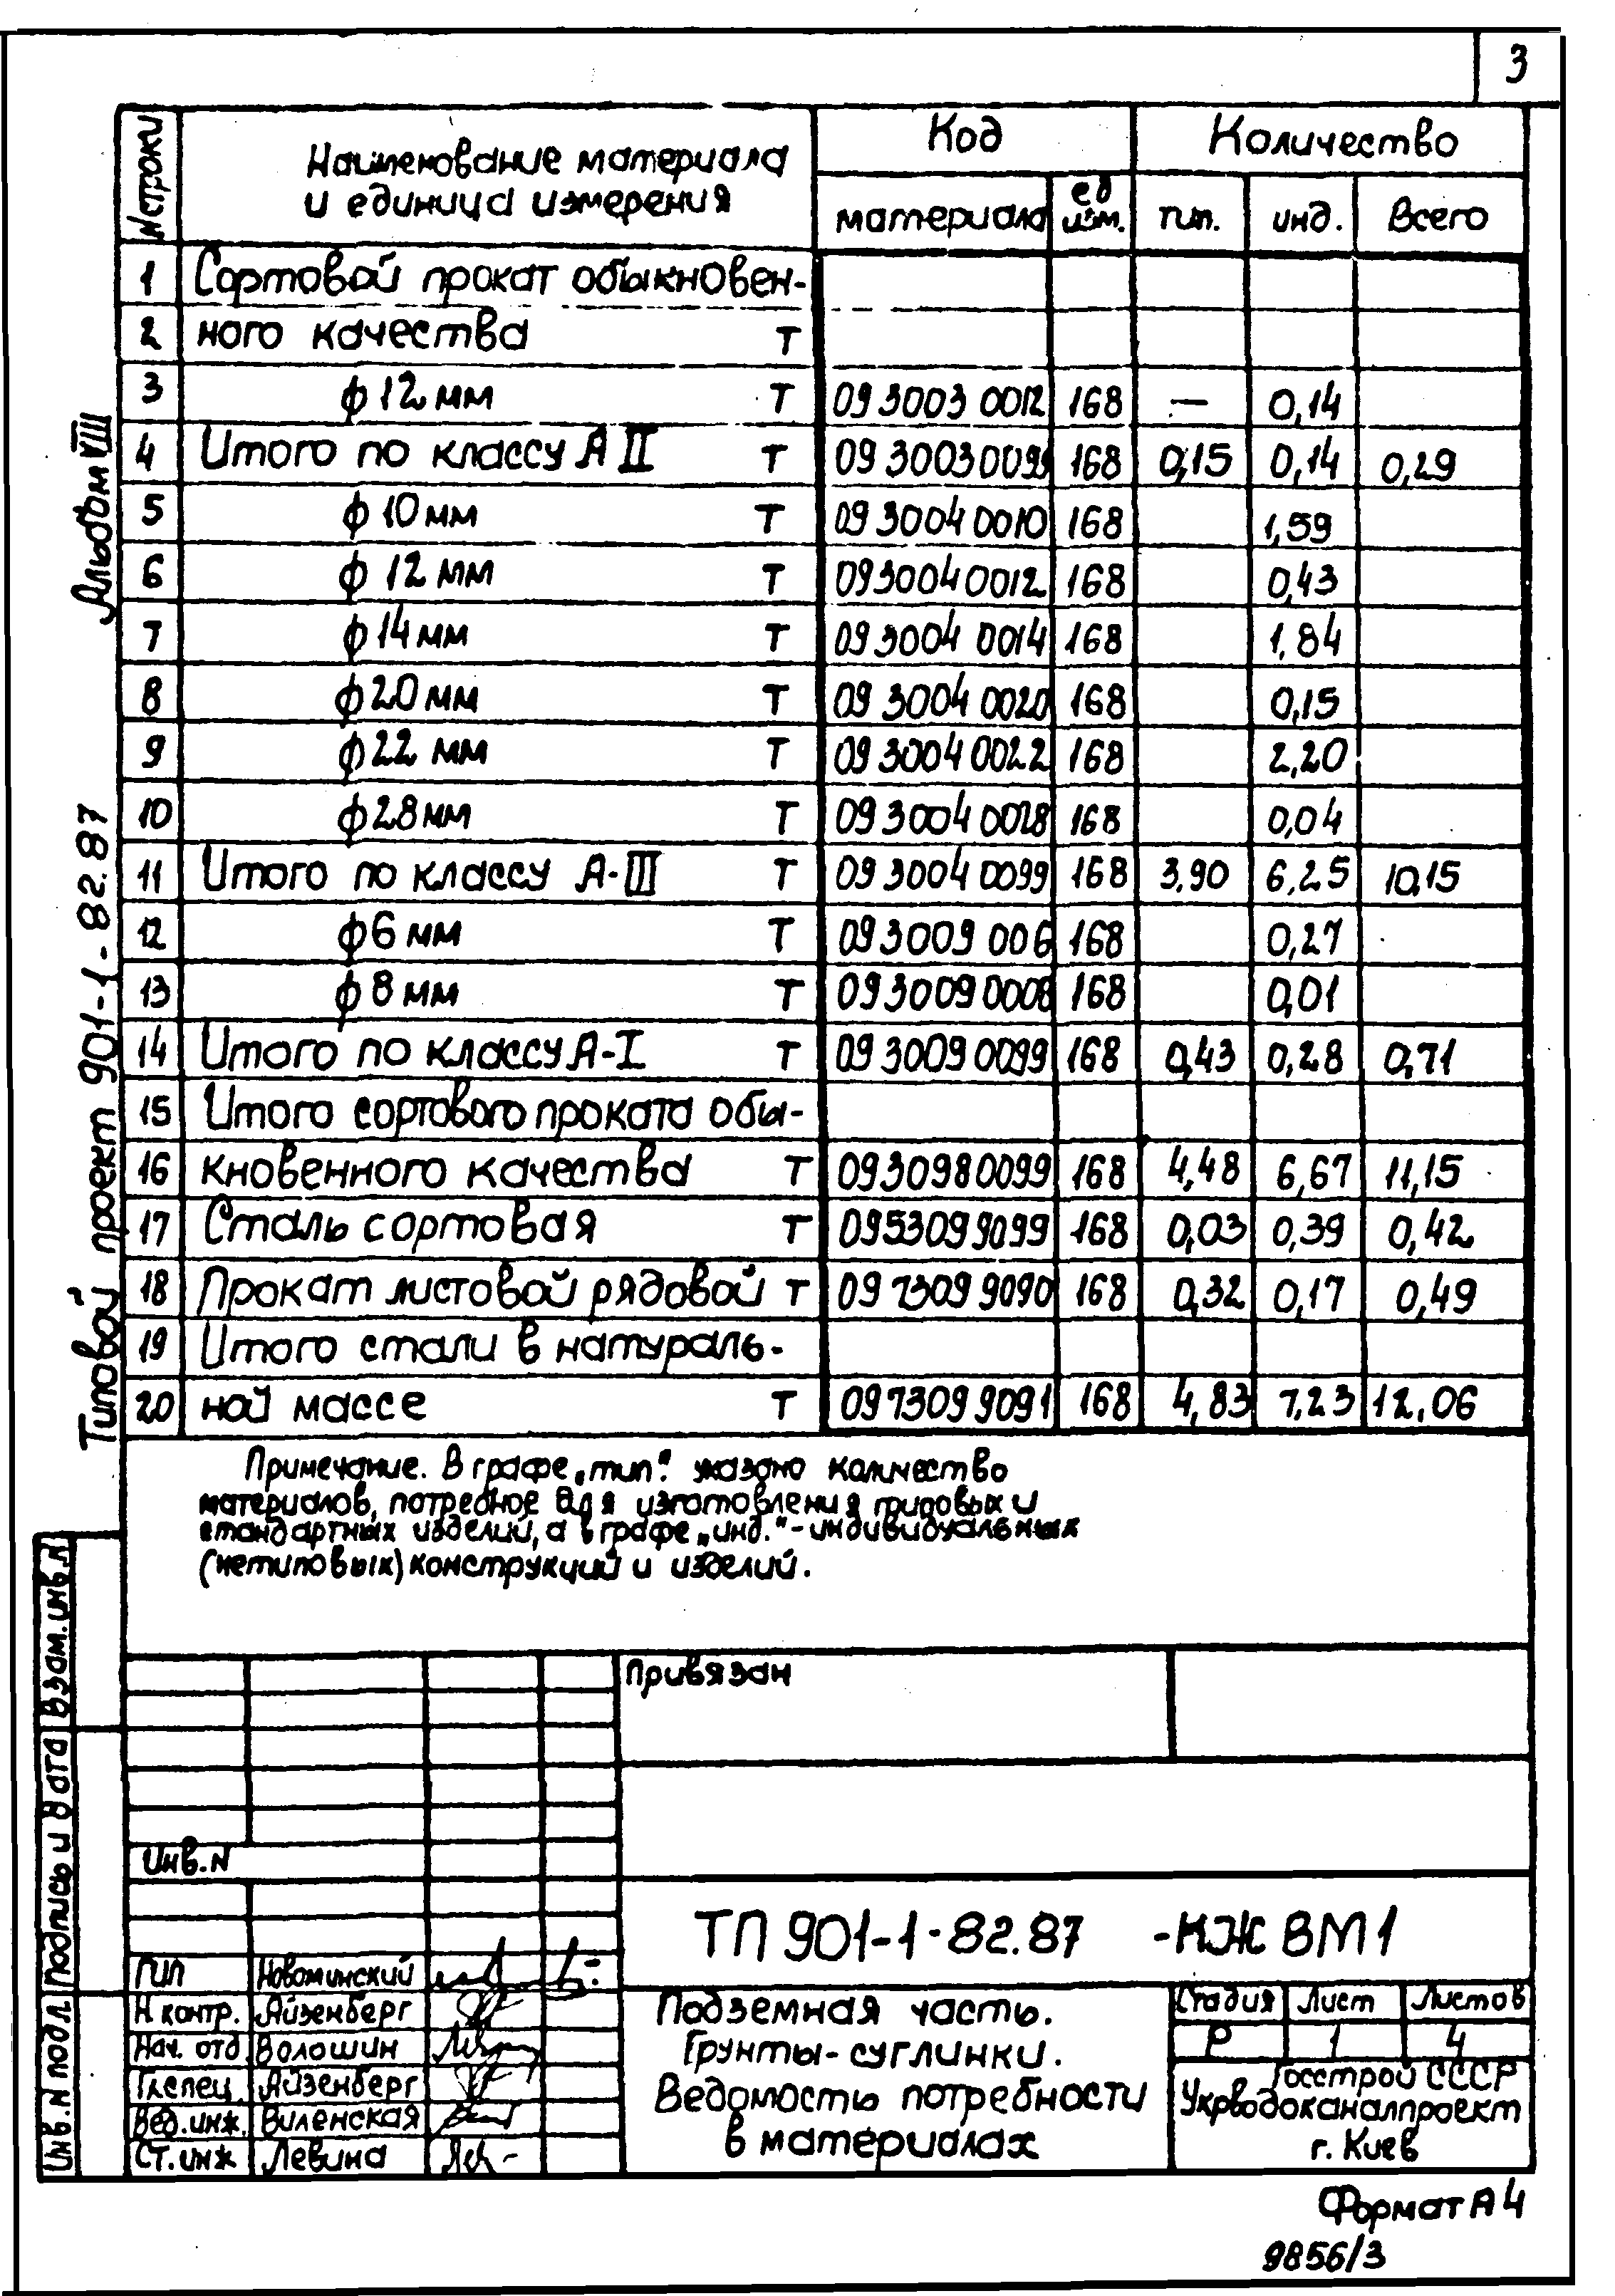 3
N строки
Наименование материала
и единица измерения
Код
Количество
материала
ед
изм.
тип.
инд.
Всего
1 Сортовой прокат обыкновен-
2 ного качества т
3 ф12мм т 093003 0012 168 — 0,14
4 Итого по классу А II т 0930030099 168 0,15 0,14 0,29
5 ф10мм т 093004 0010 168 1,59
6 ф12мм т 093004 0012 168 0,43
7 ф14мм т 093004 0014 168 1,84
8 ф20мм т 093004 0020 168 0,15
9 ф22мм т 093004 0022 168 2,20
10 ф28мм т 093004 0028 168 0,04
11 Итого по классу А-III т 093004 0099 168 3,90 6,25 10,15
12 ф6мм т 093009 006 168 0,27
13 ф8мм т 093009 0008 168 0,01
14 Итого по классу А-I т 093009 0099 168 0,43 0,28 0,71
15 Итого сортового проката обы-
16 кновенного качества т 0930980099 168 4,48 6,67 11,15
17 Сталь сортовая т 0953099099 168 0,03 0,39 0,42
18 Прокат листовой рядовой т 0973099090 168 0,32 0,17 0,49
19 Итого стали в натураль-
20 ной массе т 0973099091 168 4,83 7,23 12,06
Примечание. В графе „тип." указано количество
материалов, потребное для изготовления типовых и
стандартных изделий, а в графе „инд." - индивидуальных
(нетиповых) конструкций и изделий.
Альбом VIII
Типовой проект 901-1-82.87
Взам.инв.N
Подпись и дата
Инв.N подл.
Привязан
Инв.N
ТП 901-1-82.87 -КЖ ВМ1
ГИП Новоминский
Н.контр. Айзенберг
Нач. отд Волошин
Гл.спец. Айзенберг
Вед.инж. Виленская
Ст.инж Левина
Подземная часть.
Грунты-суглинки.
Ведомость потребности
в материалах
Стадия Лист Листов
Р 1 4
Госстрой СССР
Укрводоканалпроект
г. Киев
Формат А4
9856/3